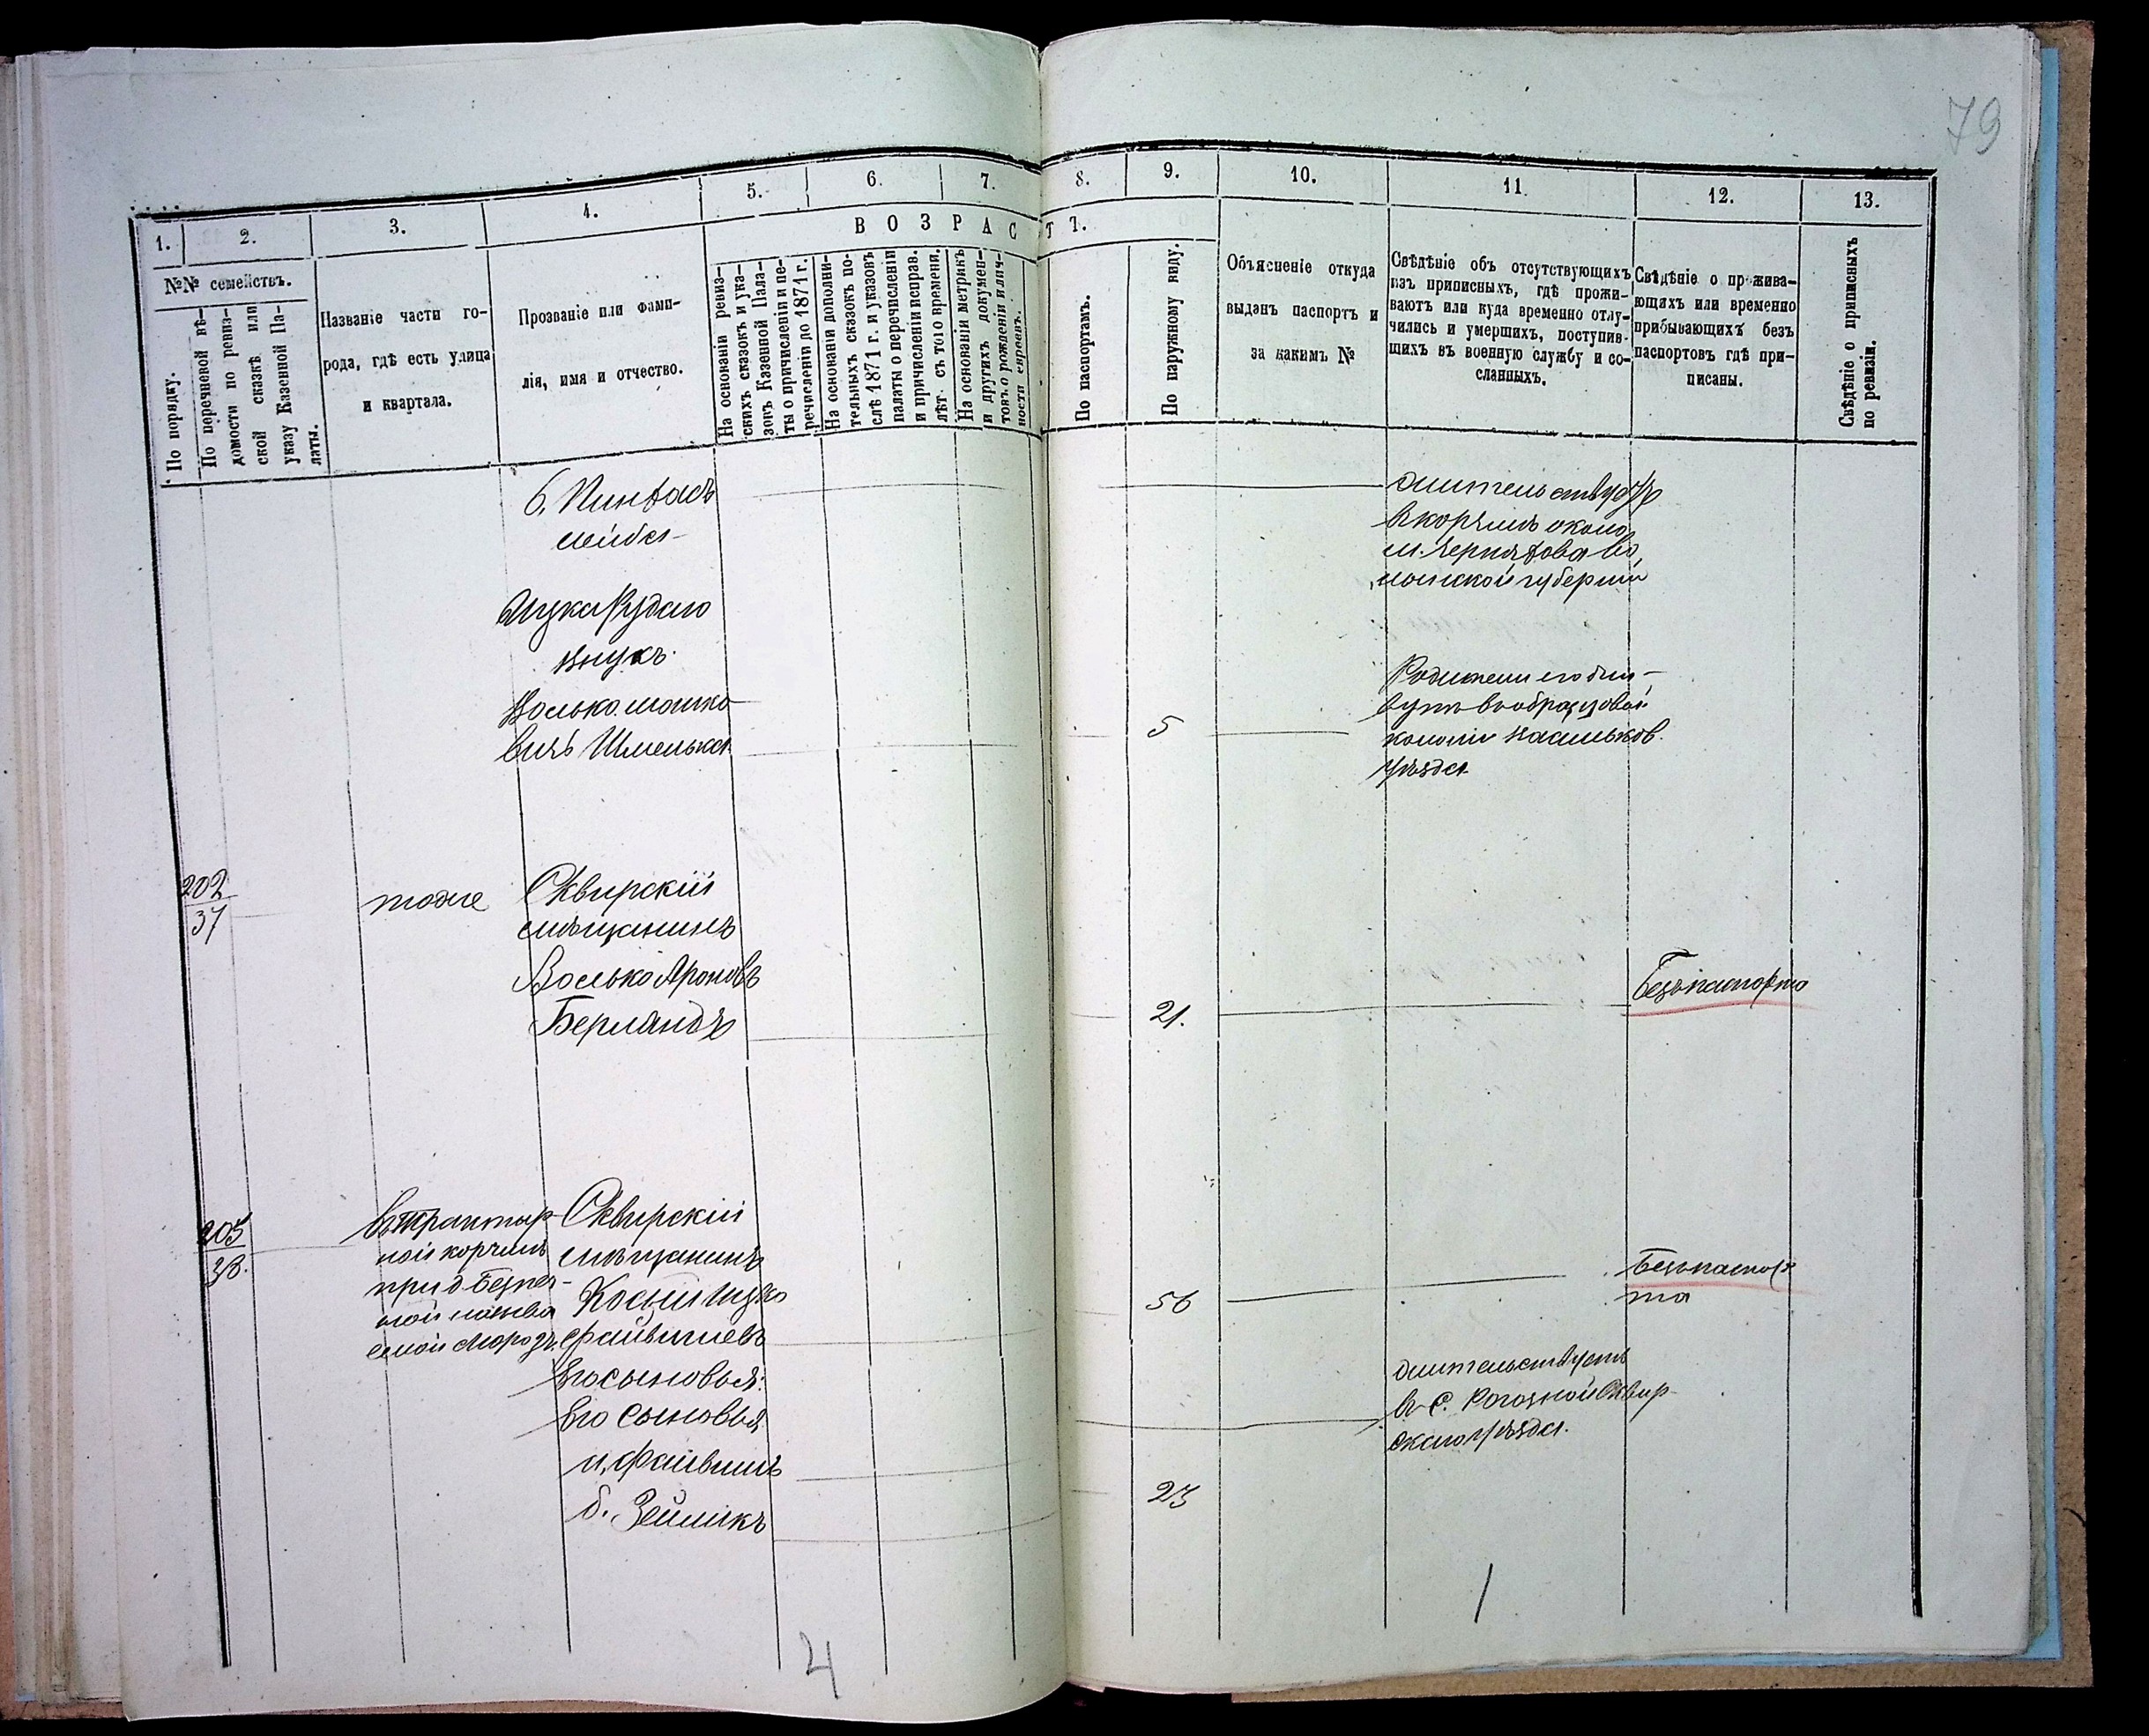 79
1.
2.
3.
4.
5.
6.
7.
8.
9.
10.
11.
12.
13.
№№ семействъ.
По порядку.
По перечневой вѣ-
домости по ревиз-
ской сказкѣ или
указу Казенной Па-
латы.
Названіе части го-
рода, гдѣ есть улица
и квартала.
Прозваніе или фами-
лія, имя и отчество.
ВОЗРАСТЪ.
На основаніи ревиз-
скихъ сказокъ и ука-
зовъ Казенной Пала-
ты о причисленіи и пе-
речисленіи до 1871 г.
На основаніи дополни-
тельныхъ сказокъ по-
слѣ 1871 г. и указовъ
палаты о перечисленіи
и причисленіи исправ.
лѣт. съ того времени.
На основаніи метрикъ
и другихъ докумен-
товъ о рожденіи и лич-
ности евреевъ.
По паспортамъ.
По наружному виду.
Объясненіе откуда
выданъ паспортъ и
за какимъ №
Свѣдѣніе объ отсутствующихъ
изъ приписныхъ, гдѣ прожи-
ваютъ или куда временно отлу-
чились и умершихъ, поступив-
шихъ въ военную службу и со-
сланныхъ.
Свѣдѣніе о прожива-
ющихъ или временно
прибывающихъ безъ
паспортовъ гдѣ при-
писаны.
Свѣдѣніе о приписныхъ
по ревизіи.
б, Пинхасъ
лейба
внукъ
Волько мошко-
вичъ Шмелька
5
въ корчмѣ около
м. Черняхова Во
лынской губерніи
Родители его жи-
вутъ въ образцовой
колоніи Васильков.
уѣзда
202
37
тоже
Сквирскій
мѣщанинъ
Волько Ароновъ
Берландъ
21.
Безъ паспорта
203
38.
въ трактир-
ной корчмѣ
при д. Безпеч-
Сквирскій
мѣщанинъ
Файвишевъ
Его сыновья:
Его сыновья
а, Файвишъ
б. Зейликъ
56
23
Безъ паспор
та
жительствуетъ
въ с. Рогозной Сквир-
скаго уѣзда.
4
1